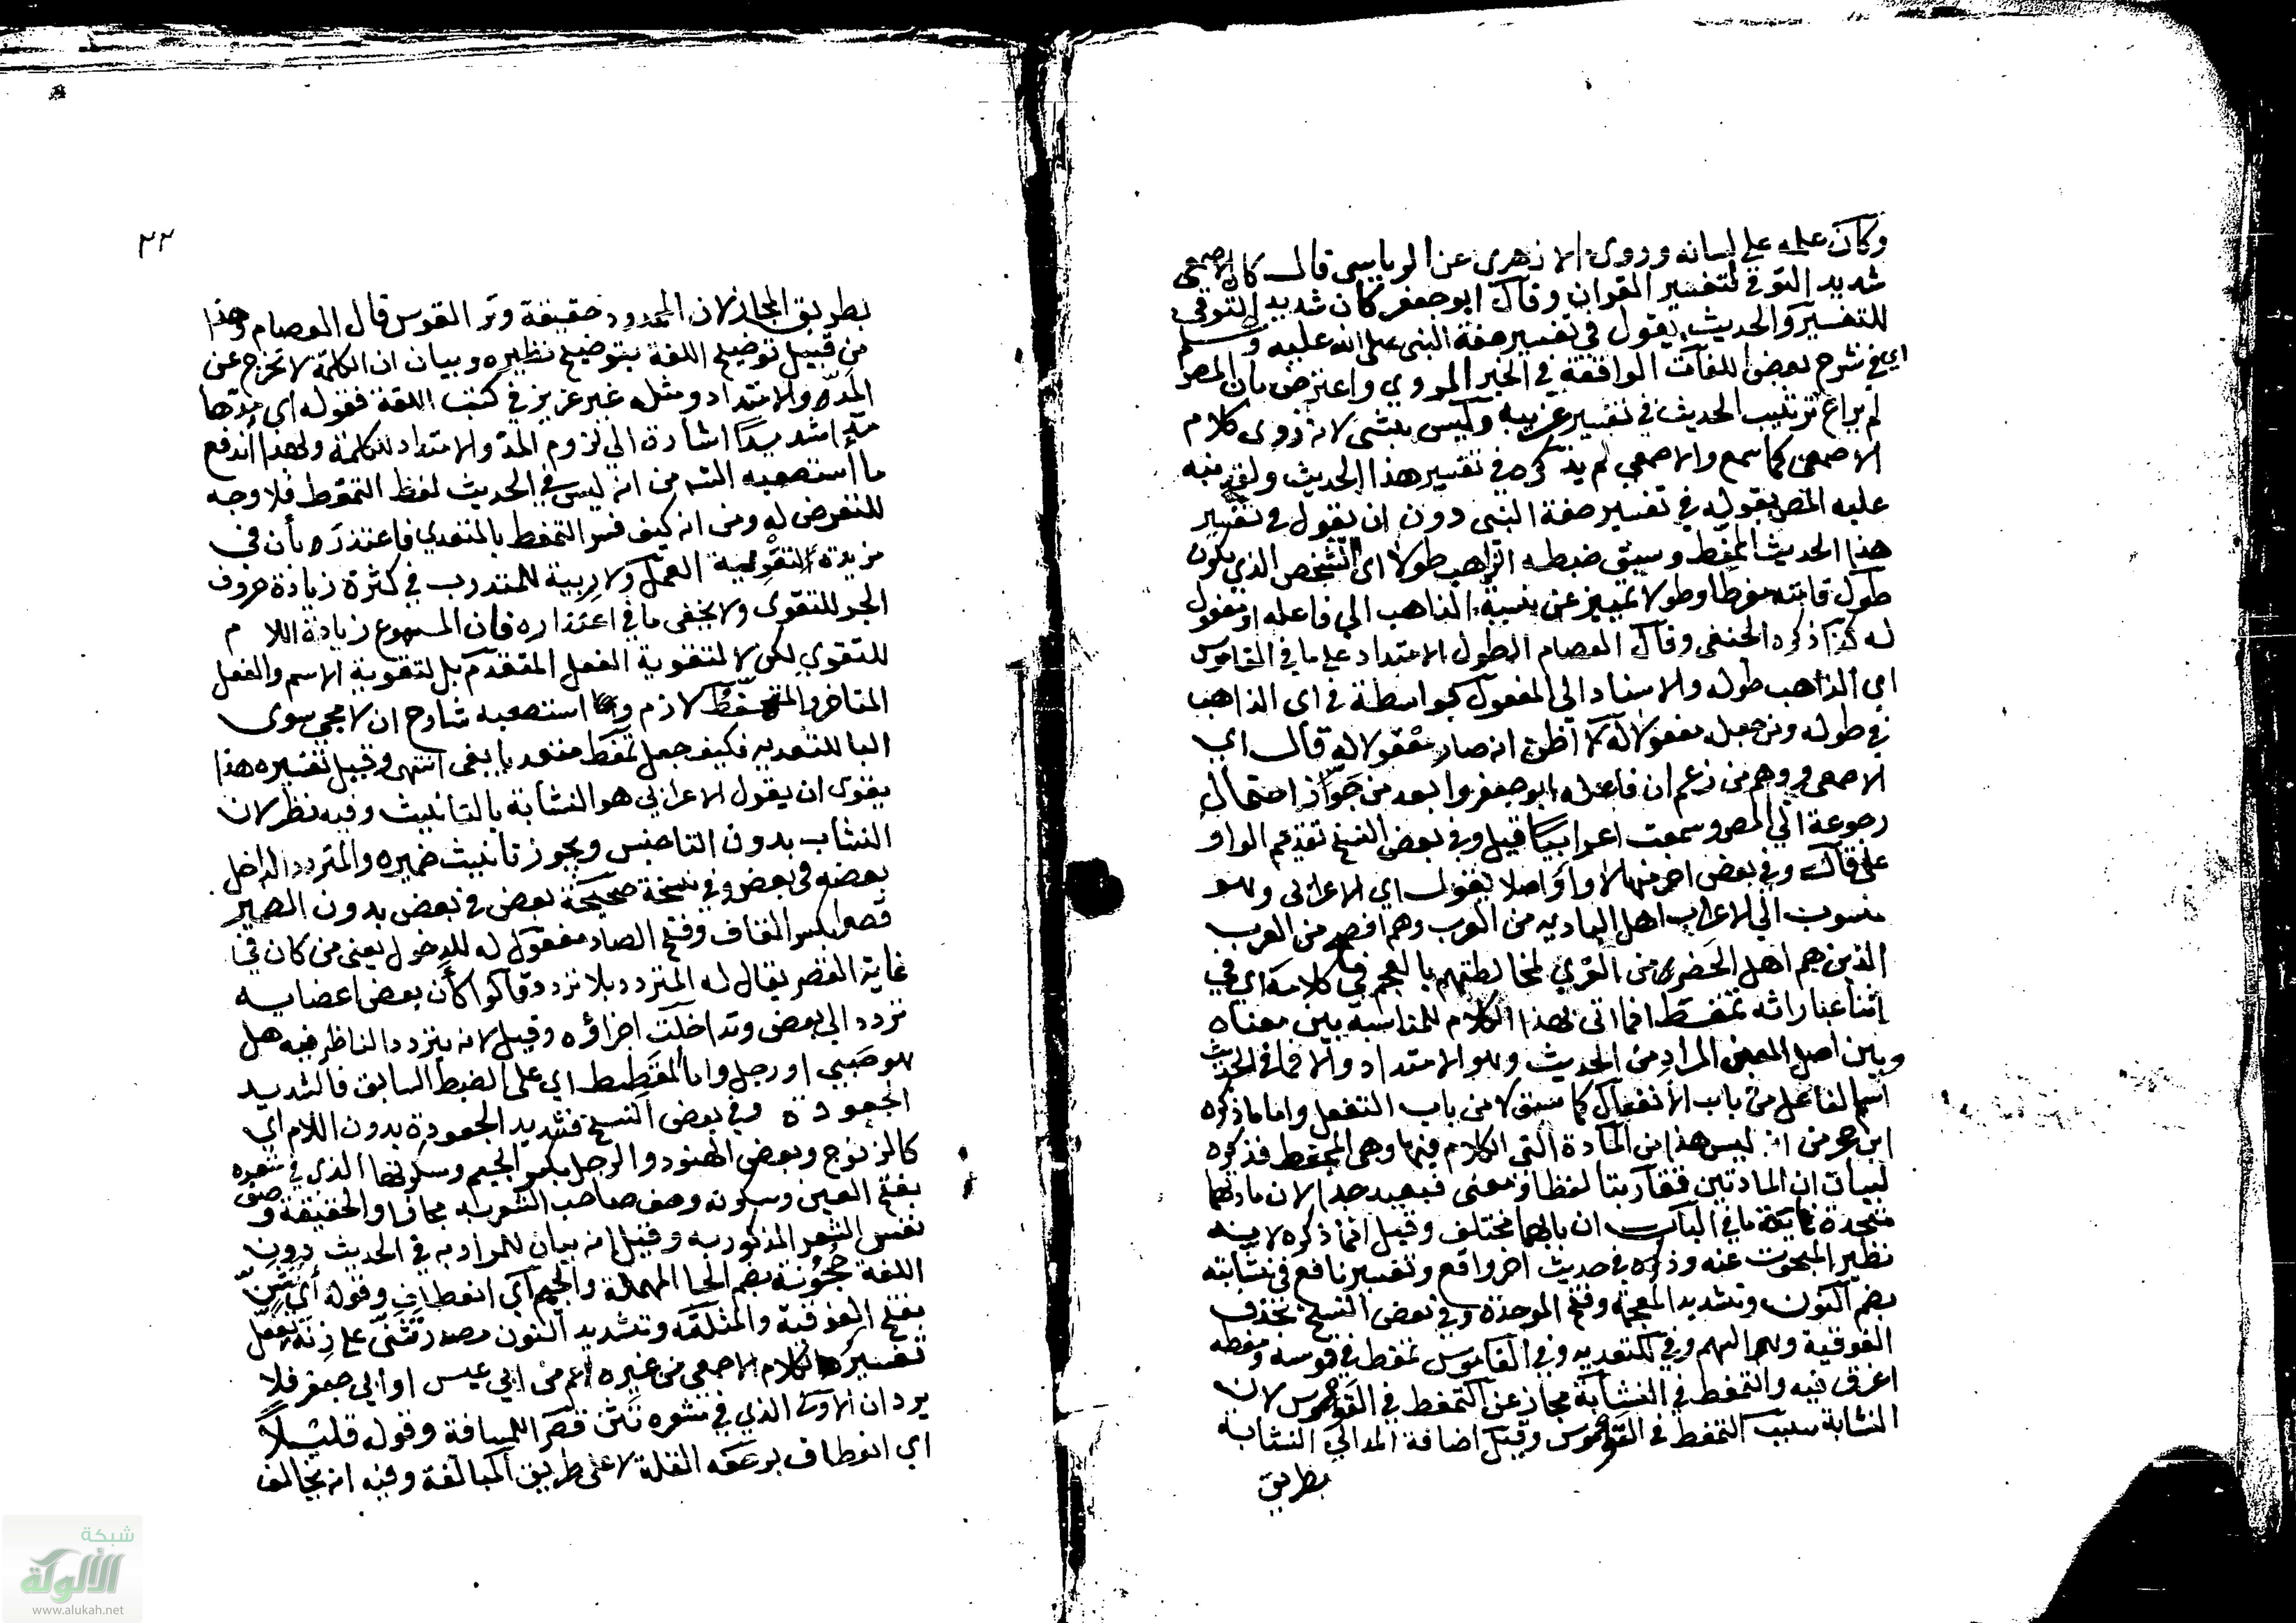 وكان علمه على لسانه وروى الازهري عن الرياشي قال كان الاصمعي
شديد التوقي لتفسير القران وقال ابو جعفر كان شديد التوقي
للتفسير والحديث يقول في تفسير صفة النبي صلى الله عليه وسلم
اي في شرح بعض اللغات الواقعة في الخبر المروي واعترض بان المص
لم يراع ترتيب الحديث في تفسير غريبه وليس بشي لانه روى كلام
الاصمعي كما سمع والاصمعي لم يذكره في تفسير هذا الحديث ولقد نبه
عليه المص بقوله في تفسير صفة النبي دون ان يقول في تفسير
هذا الحديث الممغط وسبق ضبطه الذاهب طولا اي الشخص الذي يكون
طول قامته مفرطا وطولا تمييز عن نسبة الذاهب الي فاعله او مفعول
له كذا ذكره الحنفي وقال العصام الطول الامتداد على ما في القاموس
اي الذاهب طوله والاسناد الي المفعول بواسطة في اي الذاهب
في طوله ومن جعله مفعولا له لا اظن انه صار معقولا له قال اي
الاصمعي ووهم من زعم ان فاعله ابو جعفر وابعد من جوّاز احتمال
رجوعه الي المص وسمعت اعرابيا قيل وفي بعض النسخ تقديم الواو
على قال وفي بعض اخر منها لا واو اصلا يقول اي الاعرابي وهو
منسوب الي الاعراب اهل البادية من العرب وهم افصح من العرب
الذين هم اهل الحضر من القرى لمخالطتهم بالعجم في كلامه اي في
اثنا عباراته تمغط انما اتى بهذا الكلام للمناسبة بين معناه
وبين اصل المعنى المراد من الحديث وهو الامتداد والا فما في الحديث
اسم الفاعل من باب الانفعال كما سبق لا من باب التفعل واما ما ذكره
ابن حجر من انه ليس هذا من المادة التي الكلام فيها وهي الممغط فذكره
لبيان ان المادتين تقاربتا لفظا ومعنى فبعيد جدا لان مادتهما
متحدة غاية ما في الباب ان بابهما مختلف وقيل انما ذكره لانه
نظير المبحوث عنه وذكره في حديث اخر واقع وتفسيره نافع في نشابته
بضم النون وتشديد المعجمة وفتح الموحدة وفي بعض النسخ بحذف
الفوقية وهو السهم وفي للتعدية وفي القاموس تمغط في قوسه ومغطه
اغرق فيه والتمغط في النشابة مجاز عن التمغط في القوس لان
النشابة سبب التمغط في القوس وقيل اضافة المد الي النشابة
بطريق
٢٢
بطريق المجاز لان الممدود حقيقة وتر القوس قال العصام وهذا
من قبيل توضيح اللغة بتوضيح نظيره وبيان ان الكلمة لا تخرج عن
المدّ والامتداد ومثله غير عزيز في كتب اللغة فقوله اي مدّها
مدّا شديدا اشارة الي لزوم المد والامتداد للكلمة ولهذا اندفع
ما استصعبه الشه من انه ليس في الحديث لفظ التمغط فلا وجه
للتعرض له ومن انه كيف فسر التمغط بالمتعدي فاعتذره بأن في
مزيدة لتقوية العمل ولا ريبة للمتدرب في كثرة زيادة حروف
الجر للتقوى ولا يخفى ما في اعتذاره فان المسموع زيادة اللام
للتقوي لكن لا لتقوية الفعل المتقدم بل لتقوية الاسم والفعل
المتاخر والتمغط لازم واما استصعبه شارح ان لا يجي سوى
البا للتعدية فكيف جعل تمغط متعديا بفي انتهى وقيل تفسيره هذا
يقوى ان يقول الاعرابي هو النشابة بالتانيث وفيه نظر لان
النشاب بدون التا جنس ويجوز تانيث ضميره والمتردد الداخل
بعضه في بعض وفي نسخة صحيحة بعض في بعض بدون الضمير
قصرا بكسر القاف وفتح الصاد مفعول له للدخول يعني من كان في
غاية القصر يقال له المتردد بلا تردد وقالوا كأن بعض اعضايه
تردد الي بعض وتداخلت اجزاؤه وقيل لانه يتردد الناظر فيه هل
هو صبيي او رجل واما القطط اي على الضبط السابق فالشديد
الجعودة وفي بعض النسخ فشديد الجعودة بدون اللام اي
كالزنوج وبعض الهنود والرجل بكسر الجيم وسكونها الذي في شعره
بفتح العين وسكونه وصف صاحب الشعر به مجازا والحقيقة وصف
نفس الشعر المذكور به وقيل انه بيان للمراد به في الحديث دون
اللغة حُجُونة بضم الحا المهملة والجيم اي انعطاف وقوله أي تثنّ
بفتح الفوقية والمثلثة وتشديد النون مصدر تثنى على زنة تفعّل
تفسير لكلام الاصمعي من غيره اعم من ابي عيسى او ابي جعفر فلا
يرد ان الاولى الذي في شعره تثن قصرا للمسافة وقوله قليلاً
اي انعطاف بوصفه القلة لا على طريق المبالغة وفيه انه يخالف
شبكة
الألوكة
www.alukah.net